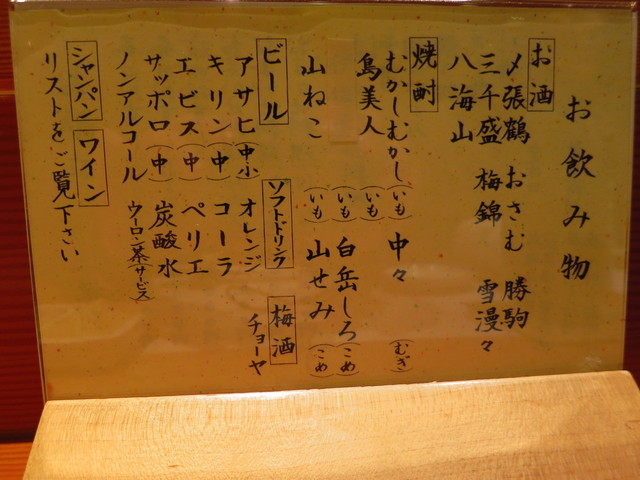 お飲み物
お酒
〆張鶴 おさむ 勝駒
三千盛 梅錦 雪漫々
八海山
焼酎
むかしむかし（いも） 中々（むぎ）
島美人（いも）
（いも） 白岳しろ（こめ）
山ねこ（いも） 山せみ（こめ）
ビール
アサヒ（中小）
キリン（中）
エビス（中）
サッポロ（中）
ノンアルコール
ソフトドリンク
オレンジ
コーラ
ペリエ
炭酸水
ウーロン茶（サービス）
梅酒
チョーヤ
シャンパン ワイン
リストをご覧下さい